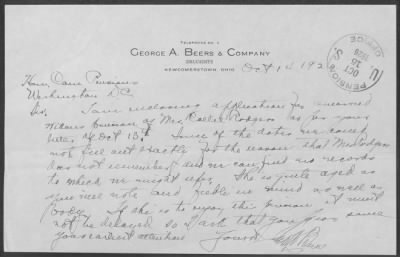 TELEPHONE NO. 
GEORGE A. BEERS & COMPANY
DRUGGISTS
NEWCOMERSTOWN, OHIO
Oct 14 192
PENSION OFFICE
OCT 16
U.S.
Hon. Com Pensions
Washington D.C.
Sir. I am enclosing application for increased
widows pension of Mrs Rodgers as per your
letter of Oct 13th. Some of the dates we could
not fill out exactly for the reason that Mrs Rodgers
has not remembered and we can find no records
to which we might refer. She is quite aged as
you will note and feeble in mind as well as
body. If she is to enjoy this pension, it must
not be delayed so I ask that you give same
your earliest attention.
Yours